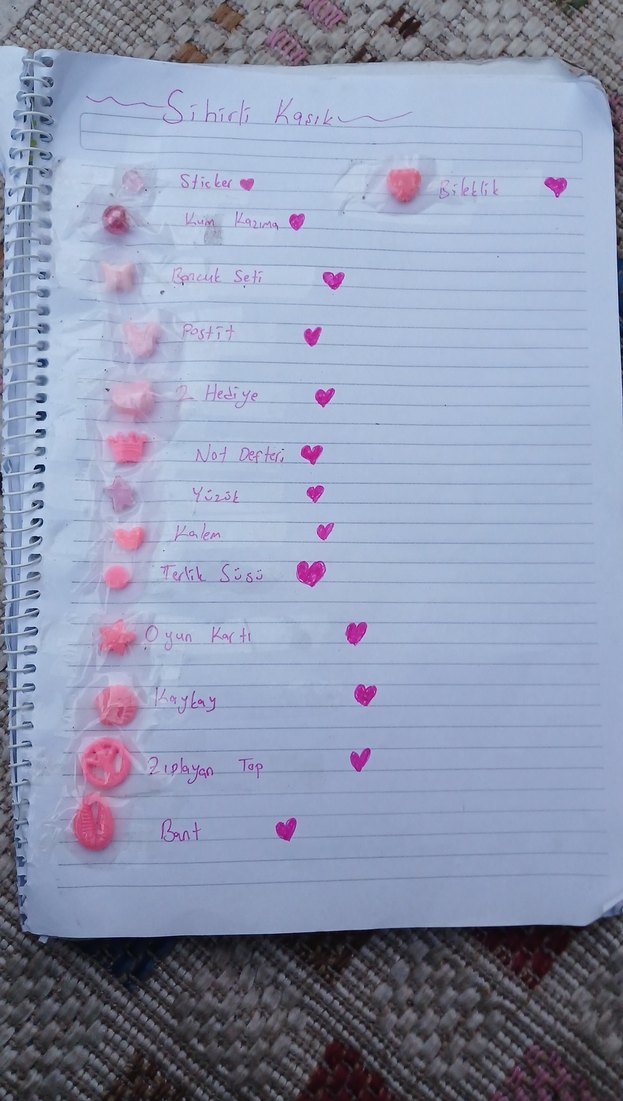 Sihirli Kaşık
Sticker
Bileklik
Kum Kazıma
Boncuk Seti
Postit
2 Hediye
Not Defteri
Yüzük
Kalem
Terlik Süsü
Oyun Kartı
Kaykay
Zıplayan Top
Bant